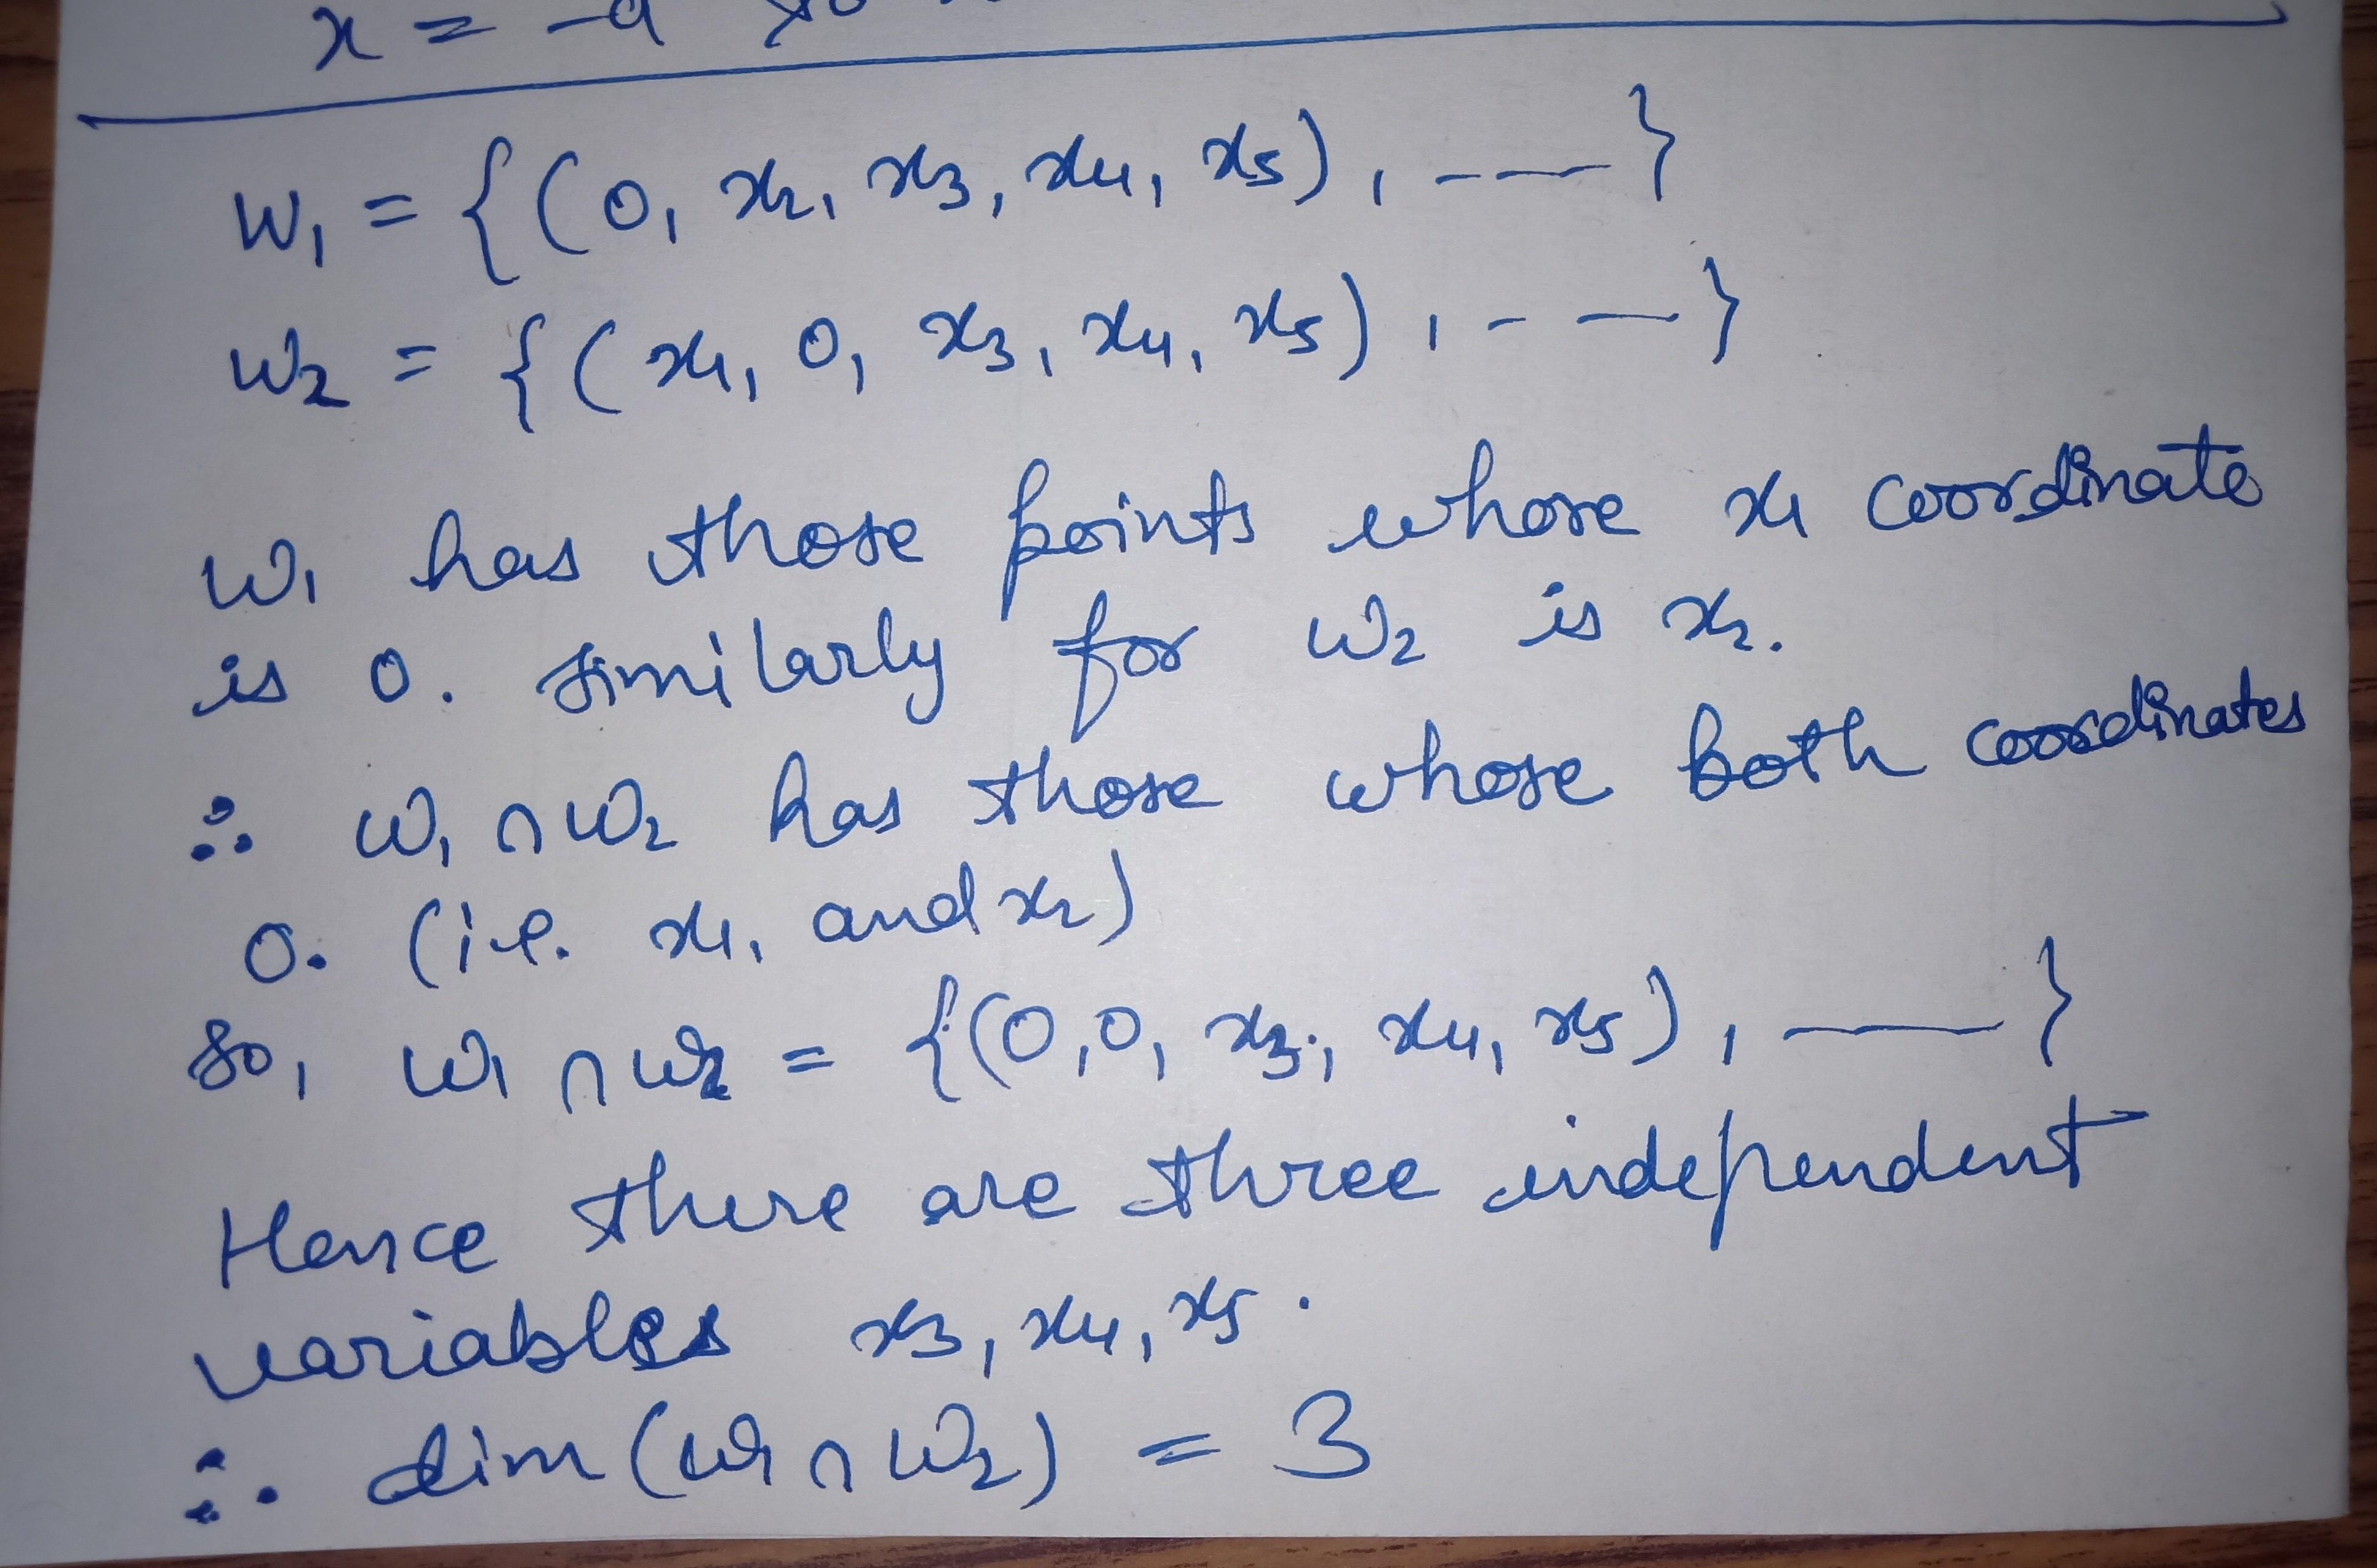 x = -a
W₁ = {(0, x₂, x₃, x₄, x₅), ---}
W₂ = {(x₁, 0, x₃, x₄, x₅), ---}
W₁ has those points whose x₁ coordinate
is 0. similarly for W₂ is x₂.
∴ W₁ ∩ W₂ has those whose both coordinates
0. (i.e. x₁, and x₂)
so, W₁ ∩ W₂ = {(0,0, x₃, x₄, x₅), —}
Hence there are three independent
variables x₃, x₄, x₅.
∴ dim (W₁ ∩ W₂) = 3